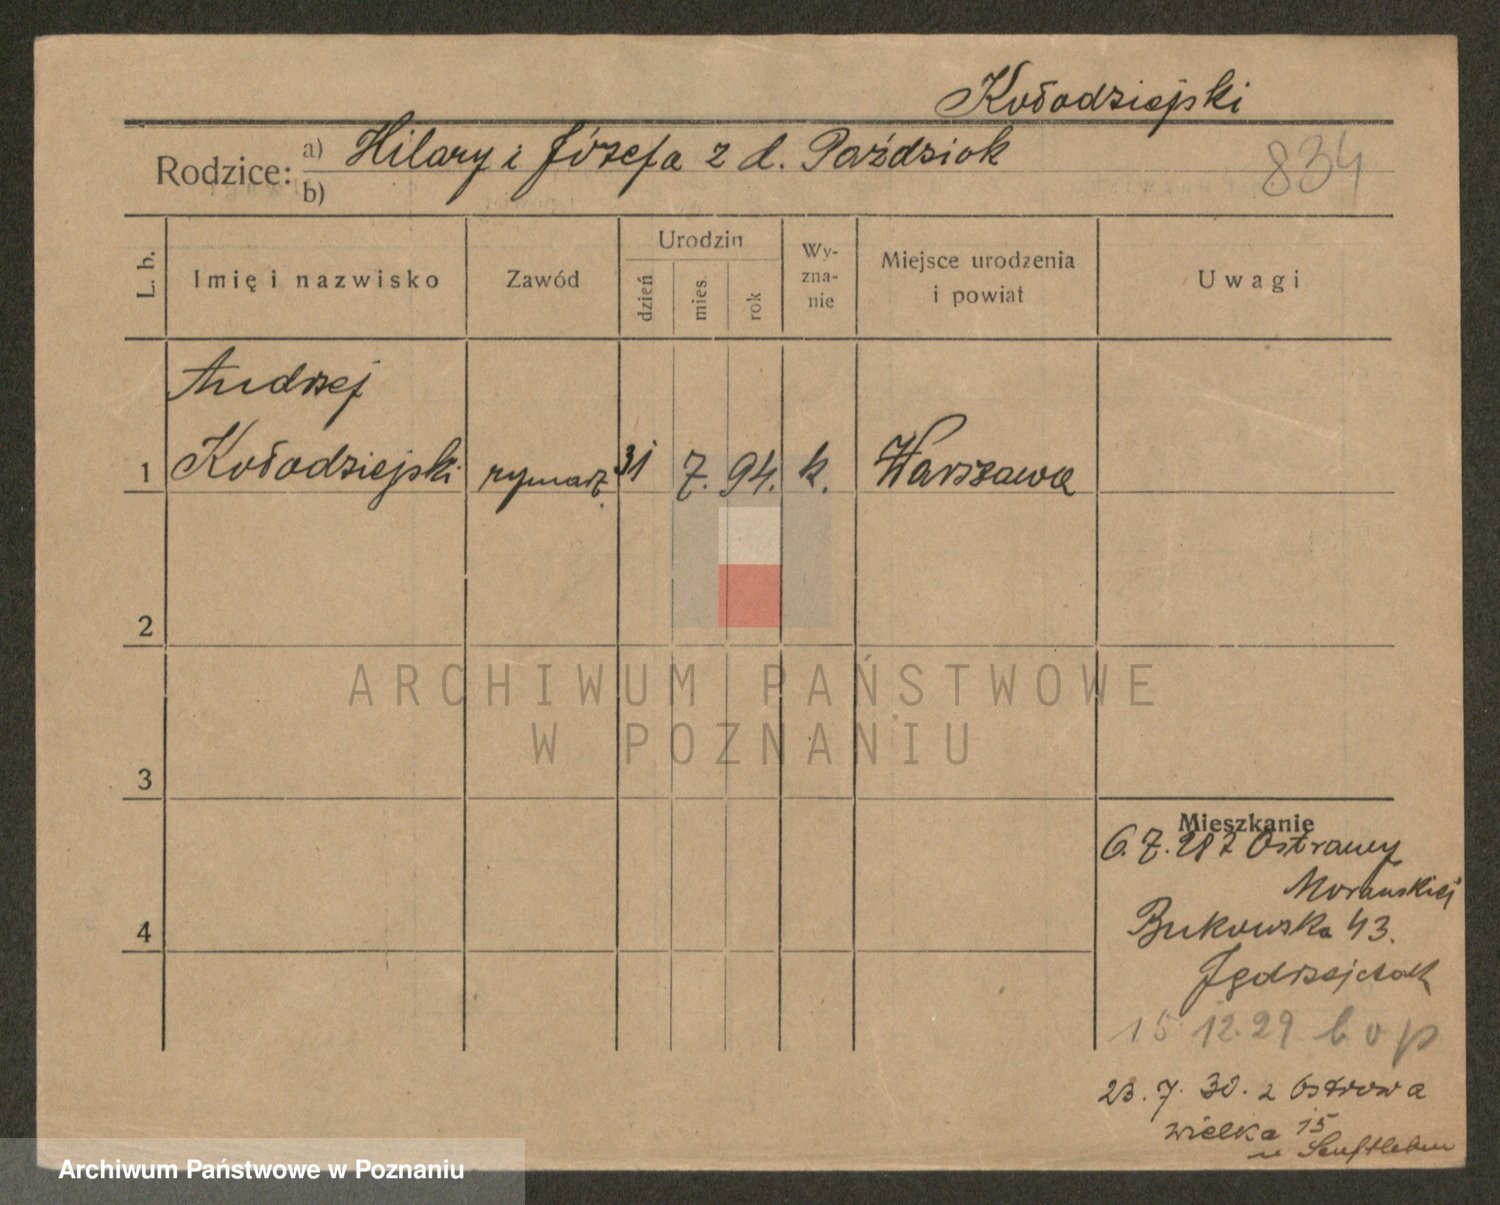 Kołodziejski
Rodzice: a) Hilary i Józefa z d. Paździok
b)
834
L. b.
Imię i nazwisko
Zawód
Urodzin
dzień
mies.
rok
Wy-
zna-
nie
Miejsce urodzenia
i powiat
Uwagi
Andrzej
1 Kołodziejski rymarz. 31 7. 94. k. Warszawa
2
3
4
ARCHIWUM PAŃSTWOWE
W POZNANIU
Mieszkanie
6.7.28 z Ostrawy
Morawskiej
Bukowska 43.
Jędrzejczak
15 12.29 b o p
23.7.30. z Ostrowa
wielka 15
u Senftleben
Archiwum Państwowe w Poznaniu